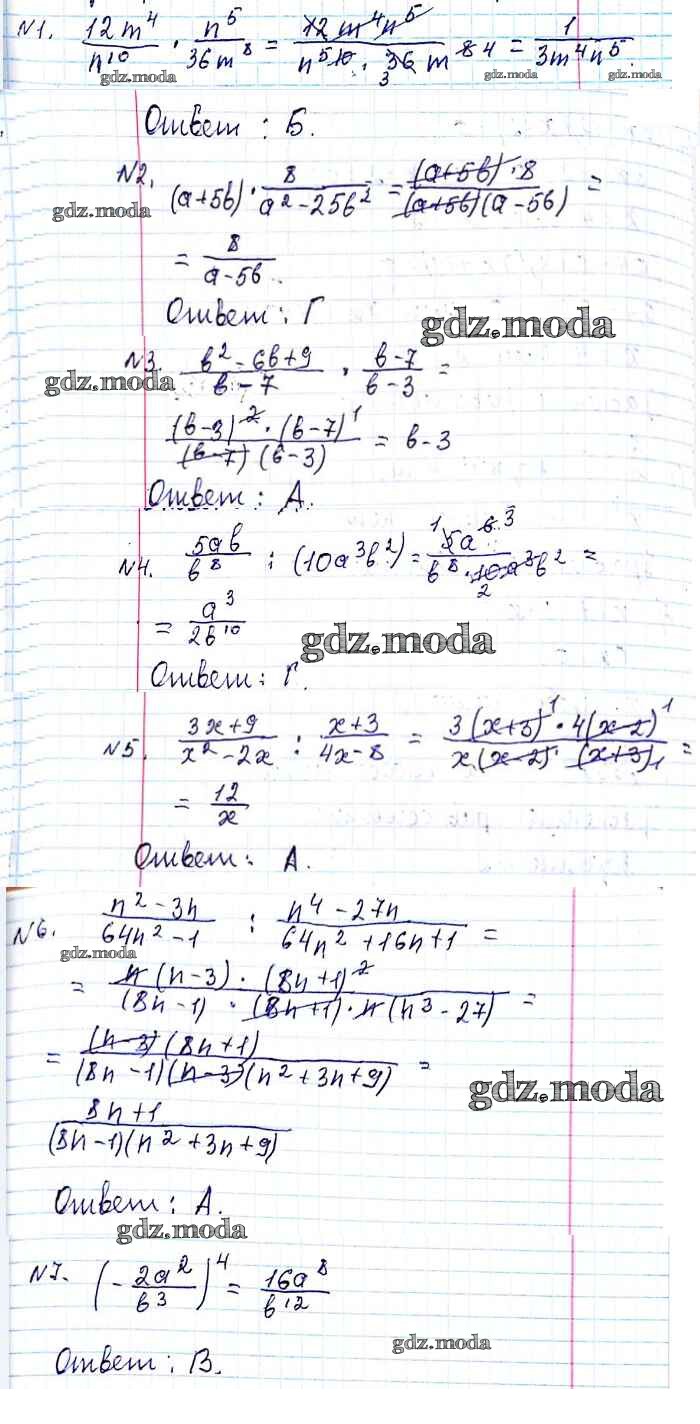 N1. 12m⁴/n¹⁰ · n⁵/36m⁸ = 12m⁴n⁵/n⁵10 · 36 3 m 8 4 = 1/3m⁴n⁵.
gdz.moda gdz.moda gdz.moda
Ответ : Б.
N2. (a+5b) · 8/a²-25b² = (a+5b) · 8/(a+5b)(a-5b) =
gdz.moda
= 8/a-5b.
Ответ : Г
gdz.moda
N3. b²-6b+9/b-7 · b-7/b-3 =
gdz.moda
(b-3)² · (b-7)¹/(b-7)(b-3) = b-3
Ответ : А.
N4. 5ab/b⁸ : (10a³b²) = 1 5a b 3/b⁸ · 10 2 a³b² =
= a³/2b¹⁰
gdz.moda
Ответ : Г.
N5. 3x+9/x²-2x : x+3/4x-8 = 3(x+3)¹ · 4(x-2)¹/x(x-2)¹ (x+3)₁ =
= 12/x
Ответ : А.
N6. n²-3n/64n²-1 : n⁴-27n/64n²+16n+1 =
gdz.moda
= n(n-3) · (8n+1)²/(8n-1) · (8n+1) · n(n³-27) =
= (n-3)(8n+1)/(8n-1)(n-3)(n²+3n+9) =
gdz.moda
8n+1/(8n-1)(n²+3n+9)
Ответ : А.
gdz.moda
N7. (-2a²/b³)⁴ = 16a⁸/b¹²
gdz.moda
Ответ : В.